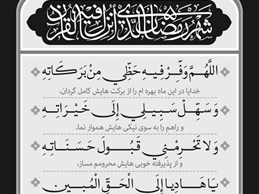 شهر رمضان الذي أنزل فيه القرآن
اللَّهُمَّ وَفِّرْ فِيهِ حَظِّي مِنْ بَرَكَاتِهِ
خدایا در این ماه بهره ام را از برکت هایش کامل گردان،
وَ سَهِّلْ سَبِيلِي إِلَى خَيْرَاتِهِ
و راهم را به سوی نیکی هایش هموار نما،
وَ لَا تَحْرِمْنِي قَبُولَ حَسَنَاتِهِ
و از پذیرفته خوبی هایش محرومم مساز،
يَا هَادِيا إِلَى الْحَقِّ الْمُبِينِ